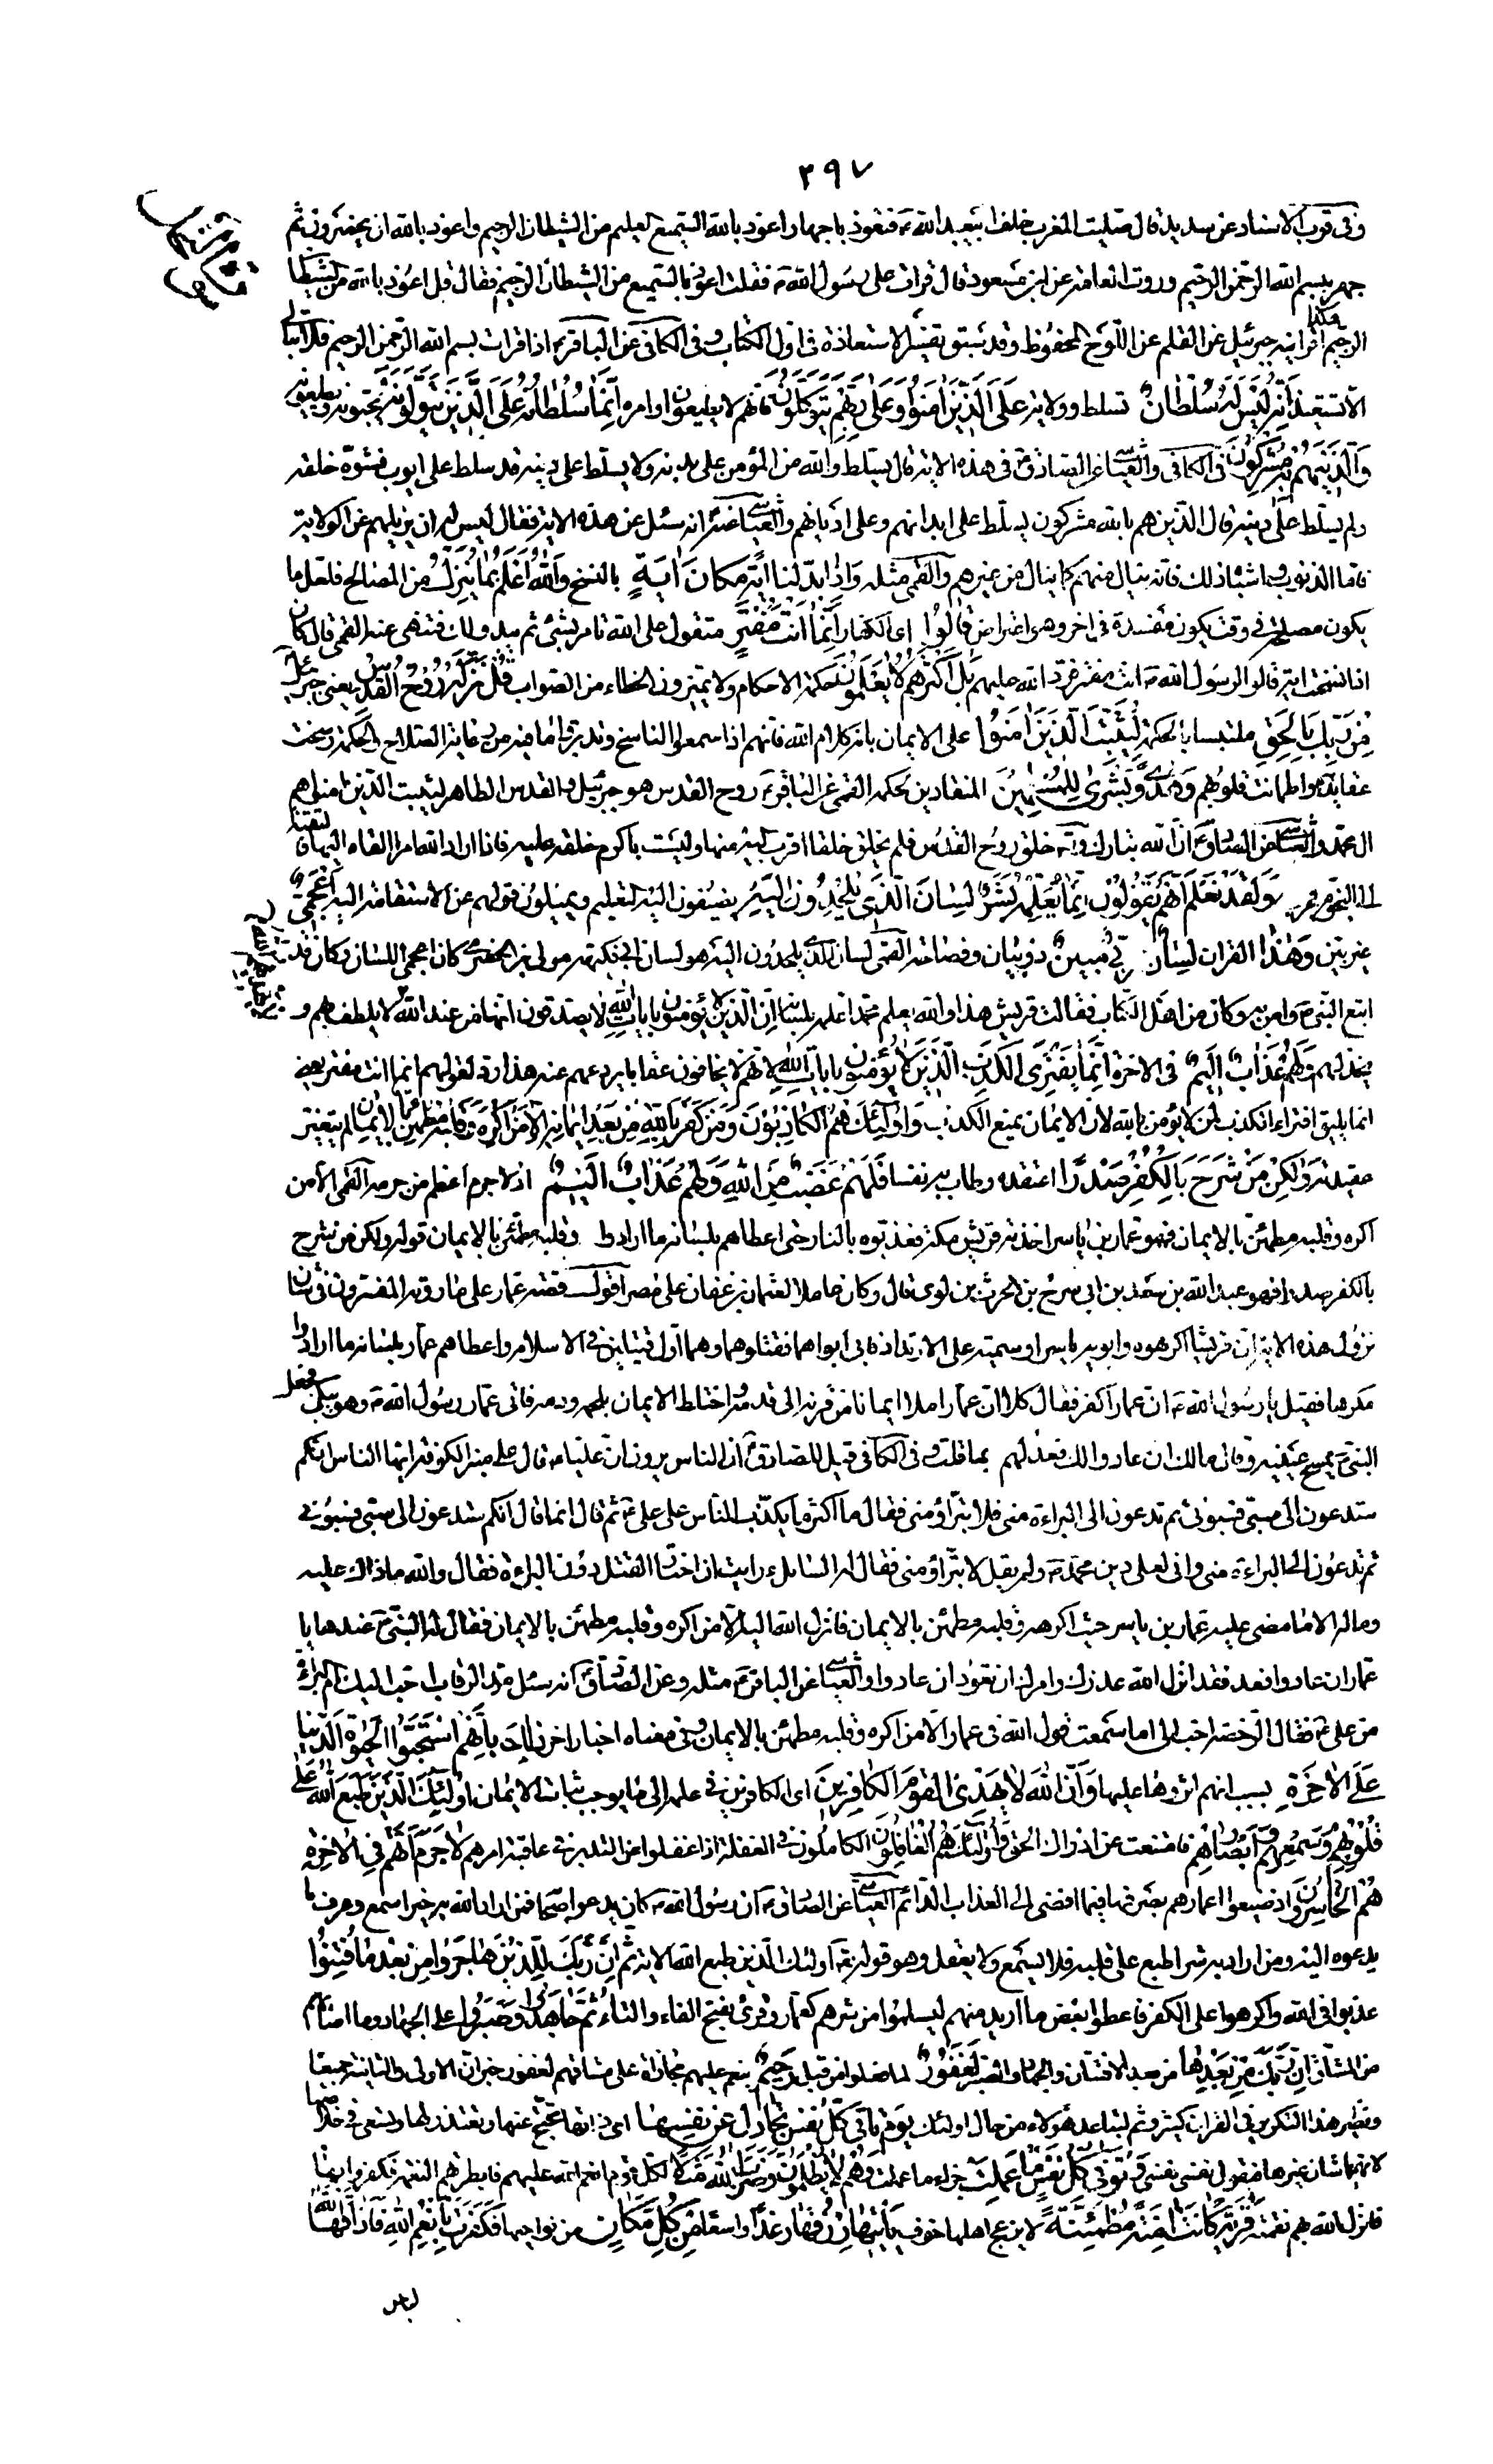 ٢٩٧
وفى قرب الاسناد عن سدير قال صليت المغرب خلف ابيعبد الله ع فتعوذ باجهار اعوذ بالله السميع العليم من الشيطان الرجيم واعوذ بالله ان يحضرون ثم
جهر ببسم الله الرحمن الرحيم وروت العامة عن ابن مسعود قال قرات على رسول الله ص فقلت اعوذ بالسميع من الشيطان الرجيم فقال قل اعوذ بالله من الشيطان
الرجيم هكذا اقرأنيه جبرئيل عن القلم عن اللوح المحفوظ وقد سبق تفسير الاستعاذة فى اول الكتاب وفى الكافى عن الباقر ع اذا قرات بسم الله الرحمن الرحيم فلا تبالى
الا تستعيذ اِنَّهُ لَيْسَ لَهُ سُلْطانٌ تسلط وولاية عَلَى الَّذينَ امَنُوا وَعَلى رَبِّهِمْ يَتَوَكَّلُونَ فانهم لا يطيعون اوامره اِنَّما سُلْطانُهُ عَلَى الَّذينَ يَتَوَلَّوْنَهُ يحبونه ويطيعونه
وَالَّذينَ هُمْ بِهِ مُشْرِكُونَ فى الكافى والعياشى عن الصادق ع فى هذه الاية قال يسلط والله من المؤمن على بدنه ولا يسلط على دينه قد سلط على ايوب فشوه خلقه
ولم يسلط على دينه قال الذين هم بالله مشركون يسلط على ابدانهم وعلى اديانهم والعياشى عنه ع انه سئل عن هذه الاية فقال ليس له ان يزيلهم عن الولاية
فاما الذنوب واشباه ذلك فانه ينال منهم كما ينال من غيرهم والقمى مثله وَاِذا بَدَّلْنا ايَةً مَكانَ ايَةٍ بالنسخ وَاللهُ اَعْلَمُ بِما يُنَزِّلُ من المصالح فلعل ما
يكون مصلحة فى وقت يكون مفسدة فى اخر وهو اعتراض قالُوا اى الكفار اِنَّما اَنْتَ مُفْتَرٍ متقول على الله تامر بشئ ثم يبدو لك فتنهى عنه القمى قال كان
اذا نسخت اية قالوا لرسول الله ص انت مفتر فرد الله عليهم بَلْ اَكْثَرُهُمْ لا يَعْلَمُونَ حكمة الاحكام ولا يميزون الخطاء من الصواب قُلْ نَزَّلَهُ رُوحُ الْقُدُسِ يعنى جبرئيل
مِنْ رَبِّكَ بِالْحَقِّ ملتبسا بالحكمة لِيُثَبِّتَ الَّذينَ امَنُوا على الايمان بانه كلام الله فانهم اذا سمعوا الناسخ وتدبروا ما فيه من رعاية الصلاح والحكمة رسخت
عقايدهم واطمانت قلوبهم وَهُدىً وَبُشْرى لِلْمُسْلِمينَ المنقادين لحكمه القمى عن الباقر ع روح القدس هو جبرئيل والقدس الطاهر ليثبت الذين امنوا هم
ال محمد والعياشى عن الصادق ع ان الله تبارك وتع خلق روح القدس فلم يخلق خلقا اقرب اليه منها وليست باكرم خلقه عليه فاذا اراد الله امرا القاه اليها فالقته
الى النجوم فجرت به وَلَقَدْ نَعْلَمُ اَنَّهُمْ يَقُولُونَ اِنَّما يُعَلِّمُهُ بَشَرٌ لِسانُ الَّذى يُلْحِدُونَ اِلَيْهِ يضيفون اليه التعليم ويميلون قولهم عن الاستقامة اليه اَعْجَمِىٌّ
غير بين وَهذا القران لِسانٌ عَرَبِىٌّ مُبينٌ ذو بيان وفصاحة القمى لسان الذى يلحدون اليه هو لسان ابى فكيهة مولى بنى الحضرمى كان اعجمى اللسان وكان قد
اتبع النبى ص وامن به وكان من اهل الكتاب فقالت قريش هذا والله يعلم محمدا علمه بلسانه اِنَّ الَّذينَ لا يُؤْمِنُونَ بِاياتِ اللهِ لا يصدقون انها من عند الله لا يلطف بهم و
يخذلهم وَلَهُمْ عَذابٌ اَليمٌ فى الاخرة اِنَّما يَفْتَرِى الْكَذِبَ الَّذينَ لا يُؤْمِنُونَ بِاياتِ اللهِ لانهم لا يخافون عقابا يردعهم عنه هذا رد لقولهم انما انت مفتر يعنى
انما يليق افتراء الكذب لمن لا يؤمن بالله لان الايمان يمنع الكذب وَاُولئِكَ هُمُ الْكاذِبُونَ مَنْ كَفَرَ بِاللهِ مِنْ بَعْدِ ايمانِهِ اِلاّ مَنْ اُكْرِهَ وَقَلْبُهُ مُطْمَئِنٌّ بِالايمانِ لم يتغير
عقيدته وَلكِنْ مَنْ شَرَحَ بِالْكُفْرِ صَدْرًا اعتقده وطاب به نفسا فَعَلَيْهِمْ غَضَبٌ مِنَ اللهِ وَلَهُمْ عَذابٌ اَليمٌ اذ لا جرم اعظم من جرمه القمى الا من
اكره وقلبه مطمئن بالايمان فهو عمار بن ياسر اخذته قريش بمكة فعذبوه بالنار حتى اعطاهم بلسانه ما ارادوا وقلبه مطمئن بالايمان قوله ولكن من شرح
بالكفر صدرا فهو عبد الله بن سعد بن ابى سرح بن الحرث بن لوى قال وكان عاملا لعثمان بن عفان على مصر اقول قصة عمار على ما رويه المفسرون فى شان
نزول هذه الاية ان قريشا اكرهوه وابويه ياسرا وسمية على الارتداد فابى ابواهما فقتلوهما وهما اول قتيلين فى الاسلام واعطاهم عمار بلسانه ما ارادوا
مكرها فقيل يا رسول الله ص ان عمارا كفر فقال كلا ان عمارا ملا ايمانا من قرنه الى قدمه واختلط الايمان بلحمه ودمه فاتى عمار رسول الله ص وهو يبكى فجعل
النبى ص يمسح عينيه وقال مالك ان عادوا لك فعد لهم بما قلت وفى الكافى قيل للصادق ع ان الناس يروون ان عليا ع قال على منبر الكوفة ايها الناس انكم
ستدعون الى سبى فسبونى ثم تدعون الى البراءة منى فلا تبرؤا منى فقال ما اكثر ما يكذب الناس على على ع ثم قال انما قال انكم ستدعون الى سبى فسبونى
ثم تدعون الى البراءة منى وانى لعلى دين محمد ص ولم يقل لا تبرؤا منى فقال له السائل ارايت ان اختار القتل دون البراءة فقال والله ما ذلك عليه
وماله الا ما مضى عليه عمار بن ياسر حيث اكرهه وقلبه مطمئن بالايمان فانزل الله اليه الا من اكره وقلبه مطمئن بالايمان فقال له النبى ص عندها يا
عمار ان عادوا فعد فقد انزل الله عذرك وامرك ان تعود ان عادوا والعياشى عن الباقر ع مثله وعن الصادق ع انه سئل مد الرقاب احب اليك ام البراءة
من على ع فقال الرخصة احب الى اما سمعت قول الله فى عمار الا من اكره وقلبه مطمئن بالايمان وفى معناه اخبار اخر ذلِكَ بِاَنَّهُمُ اسْتَحَبُّوا الْحَيوةَ الدُّنْيا
عَلَى الاخِرَةِ بسبب انهم اثروها عليها وَاَنَّ اللهَ لا يَهْدِى الْقَوْمَ الْكافِرينَ اى الكافرين فى علمه الى ما يوجب ثبات الايمان اُولئِكَ الَّذينَ طَبَعَ اللهُ عَلى
قُلُوبِهِمْ وَسَمْعِهِمْ وَاَبْصارِهِمْ فامتنعت عن ادراك الحق وَاُولئِكَ هُمُ الْغافِلُونَ الكاملون فى الغفلة اذ اغفلوا عن التدبر فى عاقبة امرهم لا جَرَمَ اَنَّهُمْ فِى الاخِرَةِ
هُمُ الْخاسِرُونَ اذ ضيعوا اعمارهم بصرفها فيما افضى الى العذاب الدائم العياشى عن الصادق ع ان رسول الله ص كان يدعو اصحابه فمن اراد الله به خيرا سمع وعرف ما
يدعوه اليه ومن اراد به شرا طبع على قلبه فلا يسمع ولا يعقل وهو قوله تع اولئك الذين طبع الله الاية ثُمَّ اِنَّ رَبَّكَ لِلَّذينَ هاجَرُوا مِنْ بَعْدِ ما فُتِنُوا
عذبوا فى الله واكرهوا على الكفر فاعطوا بعض ما اريد منهم ليسلموا من شرهم كعمار وقرئ بفتح الفاء والتاء ثُمَّ جاهَدُوا وَصَبَرُوا على الجهاد وما اصابهم
من المشاق اِنَّ رَبَّكَ مِنْ بَعْدِها من بعد الافتتان والجهاد والصبر لَغَفُورٌ لما فعلوا من قبل رَحيمٌ ينعم عليهم مجازاة على مشاقهم لغفور خبر ان الاولى والثانية جميعا
ونظير هذا التكرير فى القران كثير وثم لتباعد هؤلاء من حال اولئك يَوْمَ تَأْتى كُلُّ نَفْسٍ تُجادِلُ عَنْ نَفْسِها اى ذاتها تحتج عنها وتعتذر لها وتسعى فى خلاصها
لا يهمها شان غيرها فتقول نفسى نفسى وَتُوَفّى كُلُّ نَفْسٍ ما عَمِلَتْ جزاء ما عملت وَهُمْ لا يُظْلَمُونَ وَضَرَبَ اللهُ مَثَلاً لكل قوم انعم الله عليهم فابطرتهم النعمة فكفروا بها
فانزل الله بهم نقمته قَرْيَةً كانَتْ امِنَةً مُطْمَئِنَّةً لا يزعج اهلها خوف يَأْتيها رِزْقُها رَغَدًا واسعا مِنْ كُلِّ مَكانٍ من نواحيها فَكَفَرَتْ بِاَنْعُمِ اللهِ فَاَذاقَهَا اللهُ
لباس